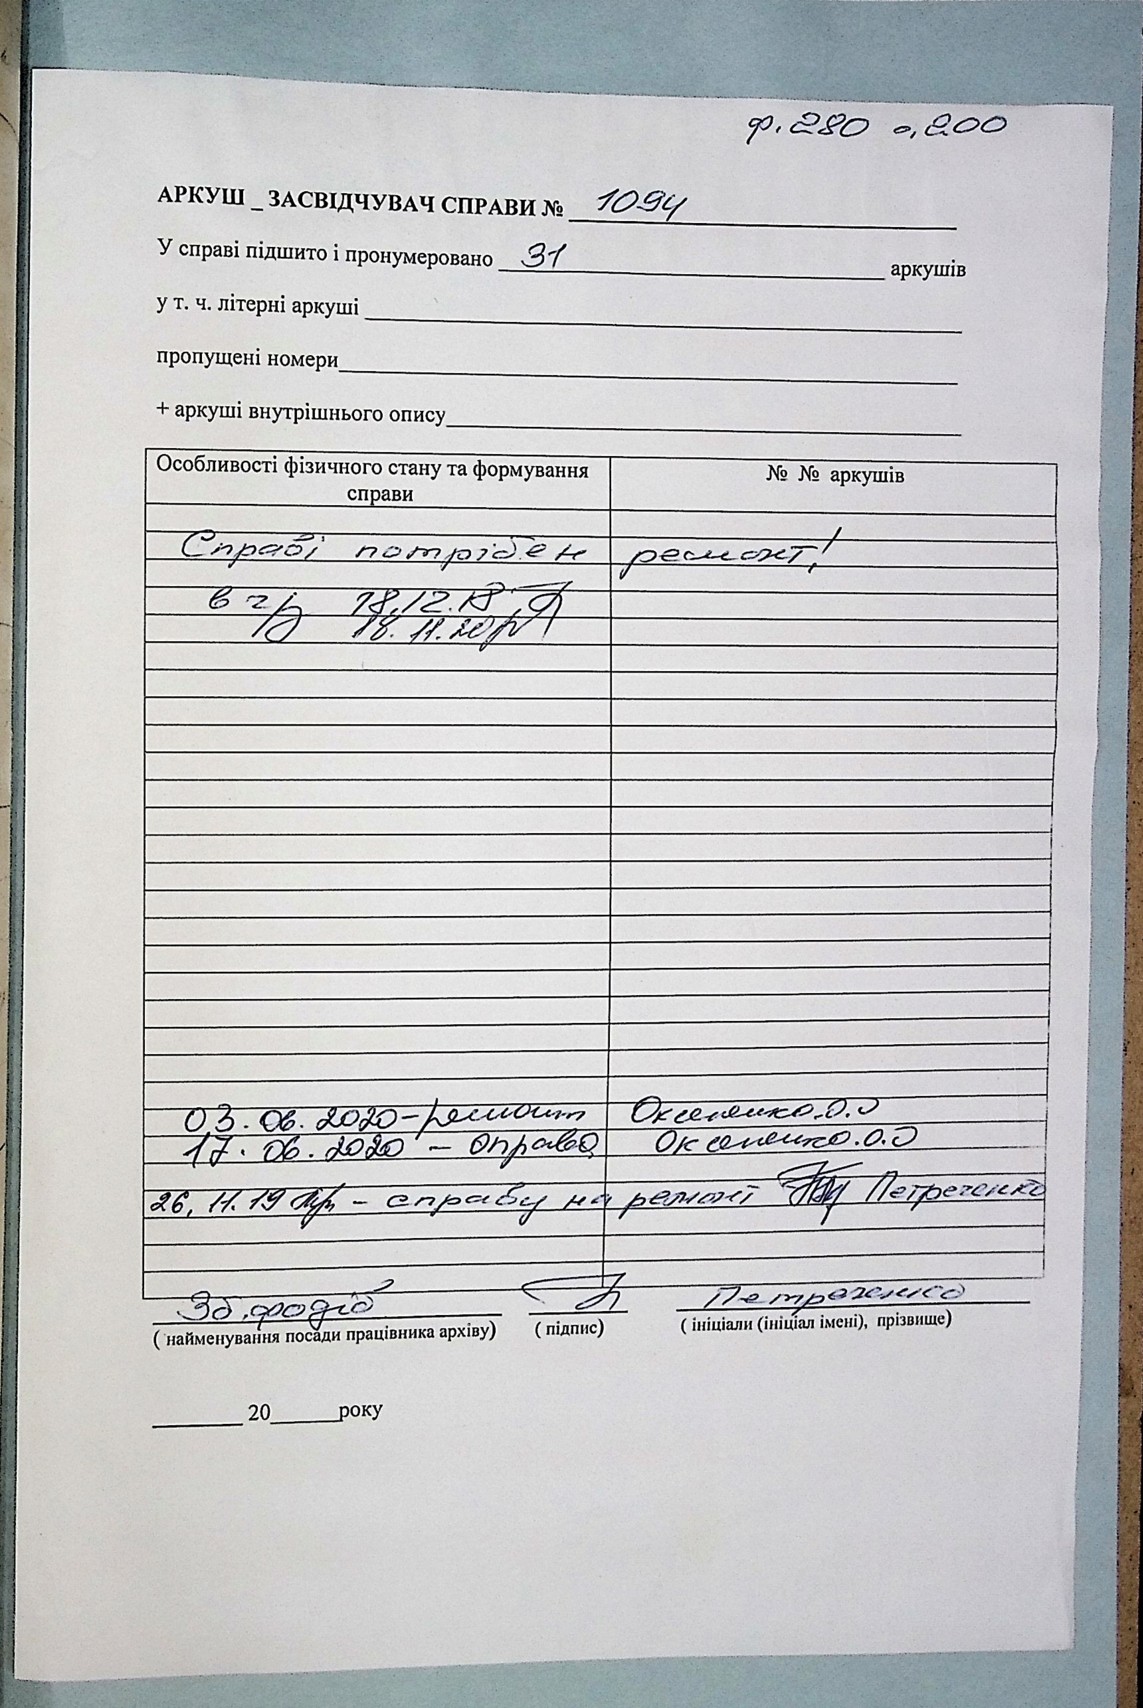 ф. 280 о. 200
АРКУШ _ ЗАСВІДЧУВАЧ СПРАВИ № 1094
У справі підшито і пронумеровано 31 аркушів
у т. ч. літерні аркуші
пропущені номери
+ аркуші внутрішнього опису
Особливості фізичного стану та формування справи
№ № аркушів
Справі потрібен ремонт!
в ч/з 18.12.18
18.11.20р
03.06.2020 - ремонт Оксененко.О.О
17.06.2020 - оправа Оксененко.О.О
26.11.19 - справу на ремонт Петреченко
Зб.фодів Петреченко
( найменування посади працівника архіву) ( підпис) ( ініціали (ініціал імені), прізвище)
______ 20_____року